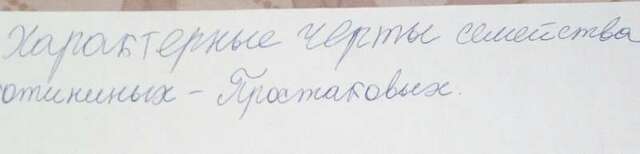 Характерные черты семейства
отининых - Простаковых.